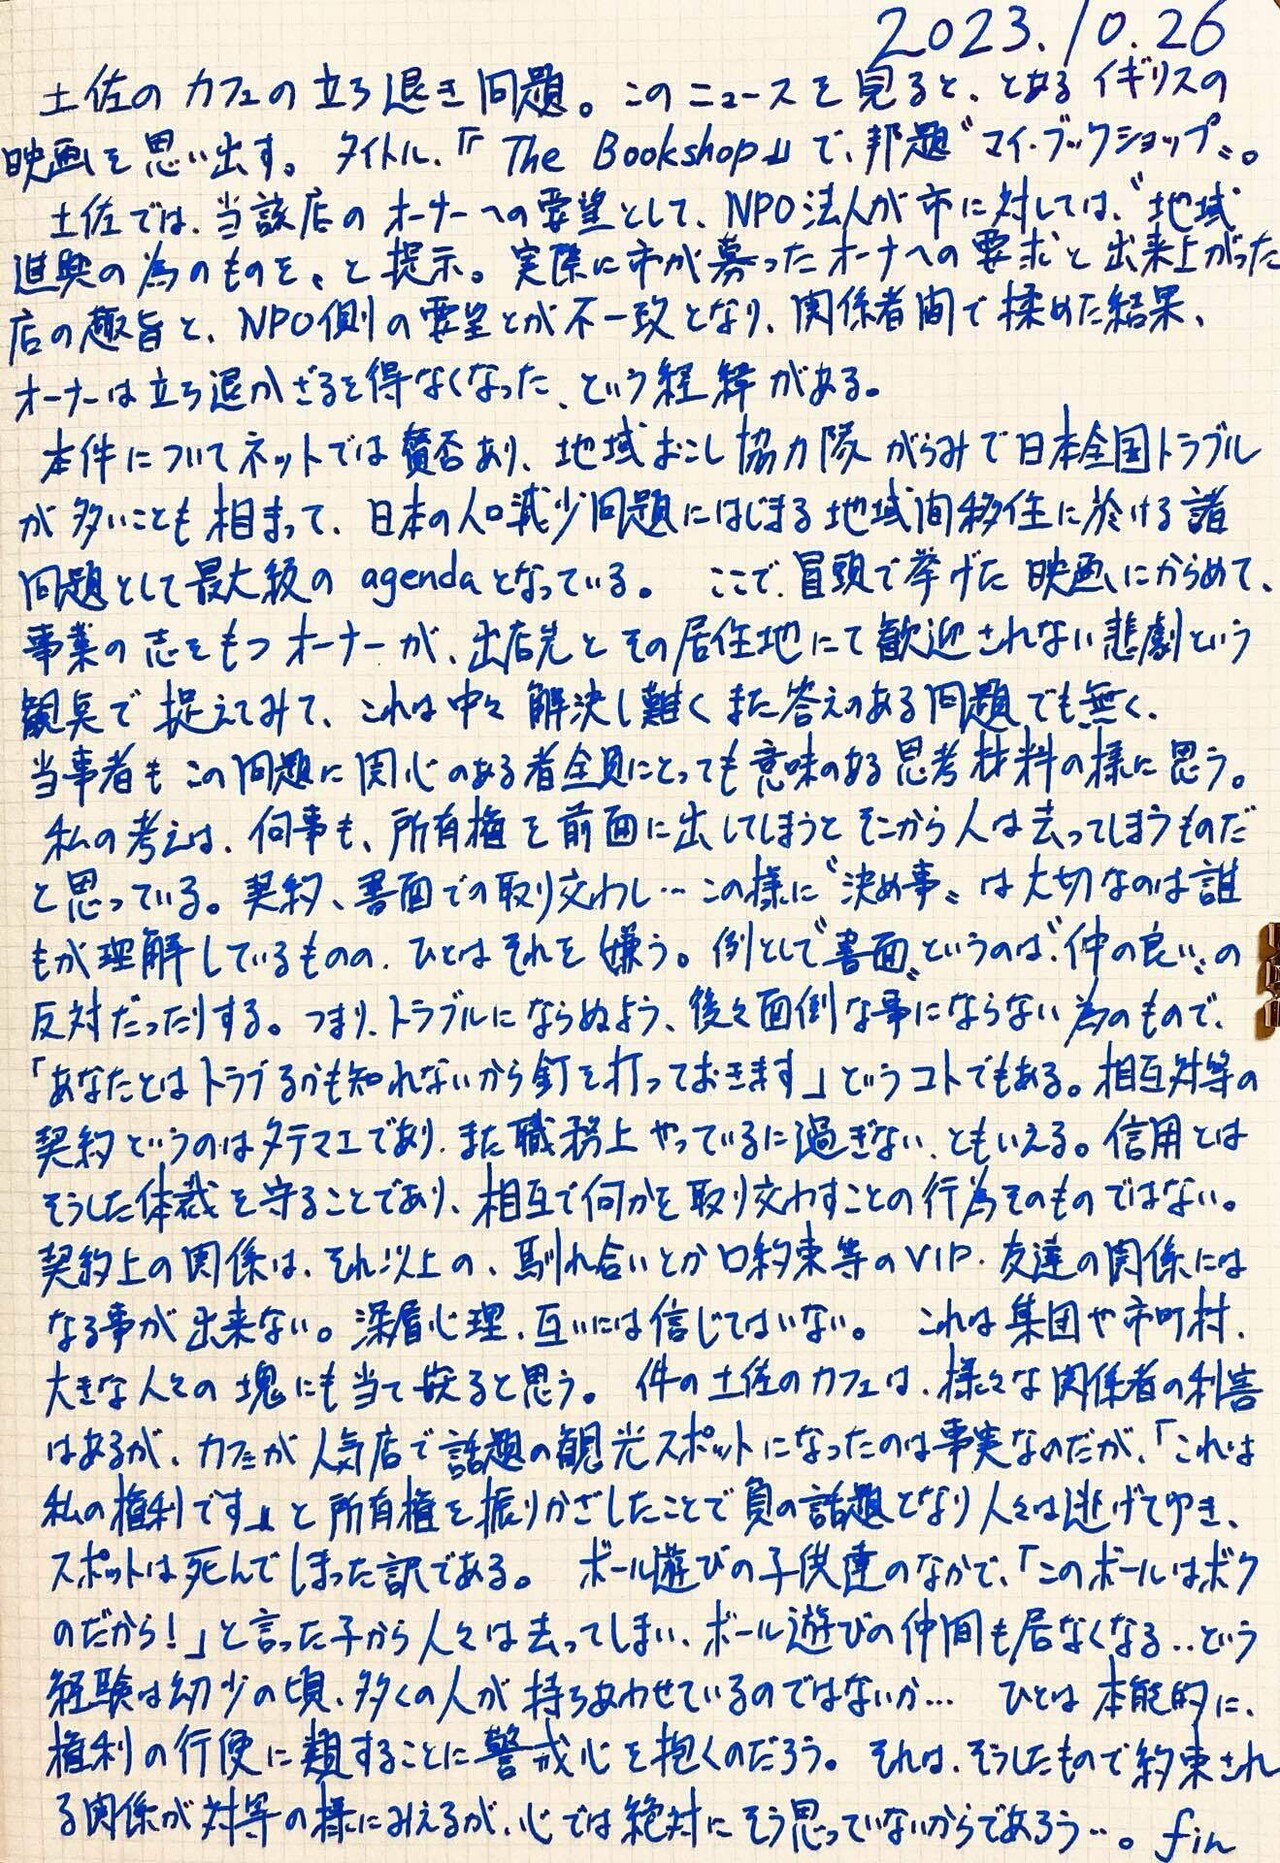 2023.10.26
土佐のカフェの立ち退き問題。このニュースを見ると、とあるイギリスの
映画を思い出す。タイトル、『The Bookshop』で、邦題〝マイ・ブックショップ〟。
土佐では、当該店のオーナーへの要望として、NPO法人が市に対しては、〝地域
進興の為のものを〟と提示。実際に市が募ったオーナへの要求と出来上がった
店の趣旨と、NPO側の要望とが不一致となり、関係者間で揉めた結果、
オーナーは立ち退かざるを得なくなった、という経緯がある。
本件についてネットでは賛否あり、地域おこし協力隊がらみで日本全国トラブル
が多いことも相まって、日本の人口減少問題にはじまる地域間移住に於ける諸
問題として最大級のagendaとなっている。 ここで、冒頭で挙げた映画にからめて、
事業の志をもつオーナーが、出店先とその居住地にて歓迎されない悲劇という
観点で捉えてみて、これは中々解決し難くまた答えのある問題でも無く、
当事者もこの問題に関心のある者全員にとっても意味のある思考材料の様に思う。
私の考えは、何事も、所有権を前面に出してしまうとそこから人は去ってしまうものだ
と思っている。契約、書面での取り交わし…この様に〝決め事〟は大切なのは誰
もが理解しているものの、ひとはそれを嫌う。例として〝書面〟というのは〝仲の良い〟の
反対だったりする。つまり、トラブルにならぬよう、後々面倒な事にならない為のもので、
「あなたとはトラブるかも知れないから釘を打っておきます」というコトでもある。相互対等の
契約というのはタテマエであり、また職務上やっているに過ぎない、ともいえる。信用とは
そうした体裁を守ることであり、相互で何かを取り交わすことの行為そのものではない。
契約上の関係は、それ以上の、馴れ合いとか口約束等のVIP・友達の関係には
なる事が出来ない。深層心理、互いには信じてはいない。 これは集団や市町村、
大きな人々の塊にも当て嵌ると思う。 件の土佐のカフェは、様々な関係者の利害
はあるが、カフェが人気店で話題の観光スポットになったのは事実なのだが、「これは
私の権利です」と所有権を振りかざしたことで負の話題となり人々は逃げてゆき、
スポットは死んでしまった訳である。 ボール遊びの子供達のなかで、「このボールはボク
のだから！」と言った子から人々は去ってしまい、ボール遊びの仲間も居なくなる‥という
経験は幼少の頃、多くの人が持ちあわせているのではないか… ひとは本能的に、
権利の行使に類することに警戒心を抱くのだろう。それは、そうしたもので約束され
る関係が対等の様にみえるが、心では絶対にそう思っていないからであろう…。fin